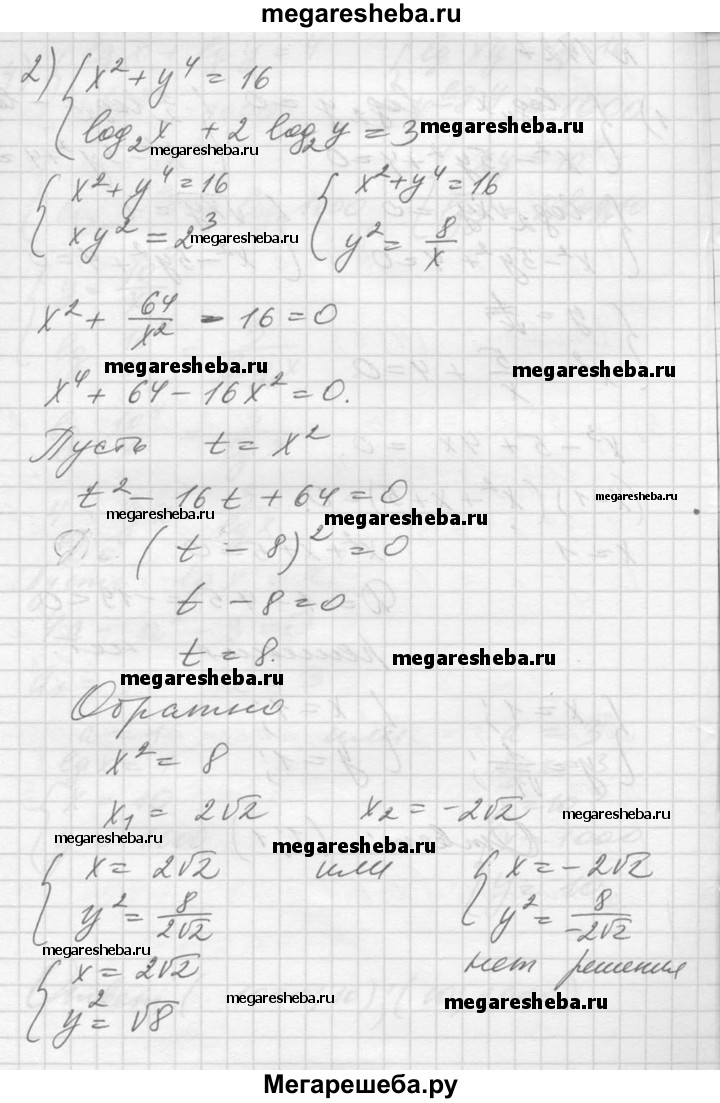 megaresheba.ru
2) { x² + y⁴ = 16
log₂x + 2 log₂y = 3 megaresheba.ru
megaresheba.ru
{ x² + y⁴ = 16 { x² + y⁴ = 16
xy² = 2³ megaresheba.ru y² = 8/x
x² + 64/x² - 16 = 0
megaresheba.ru megaresheba.ru
x⁴ + 64 - 16x² = 0.
Пусть t = x²
t² - 16t + 64 = 0 megaresheba.ru
megaresheba.ru megaresheba.ru
(t - 8)² = 0
t - 8 = 0
t = 8. megaresheba.ru
megaresheba.ru
Обратно
x² = 8
x₁ = 2√2 x₂ = -2√2 megaresheba.ru
megaresheba.ru megaresheba.ru
{ x = 2√2 или { x = -2√2
y² = 8/2√2 y² = 8/-2√2
megaresheba.ru
{ x = 2√2 нет решения
y² = √8 megaresheba.ru megaresheba.ru
Мегарешеба.ру